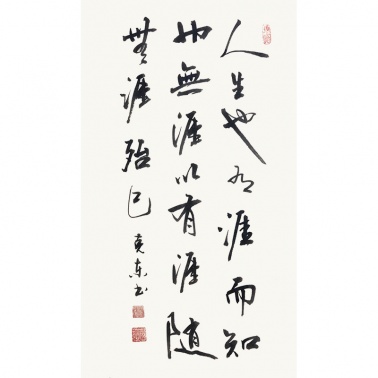 人生也有涯而知
也無涯以有涯随
無涯殆已